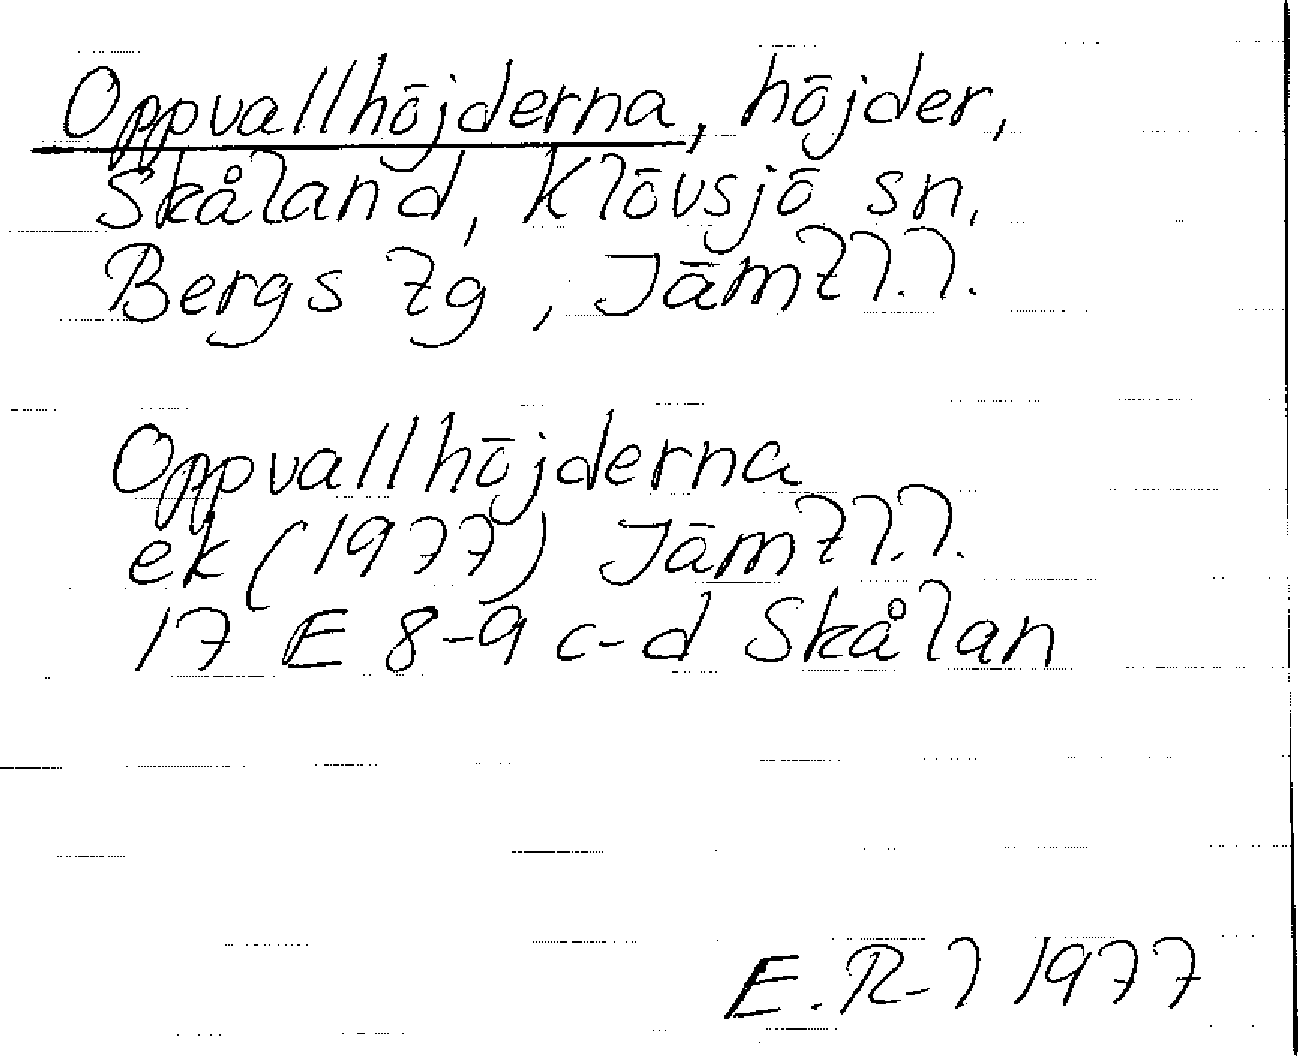 Oppvallhöjderna, höjder,
Skåland, Klövsjö sn,
Bergs tg, Jämtl.l.
Oppvallhöjderna
ek (1977) Jämtl.l.
17 E 8-9 c-d Skålan
E. R-l 1977